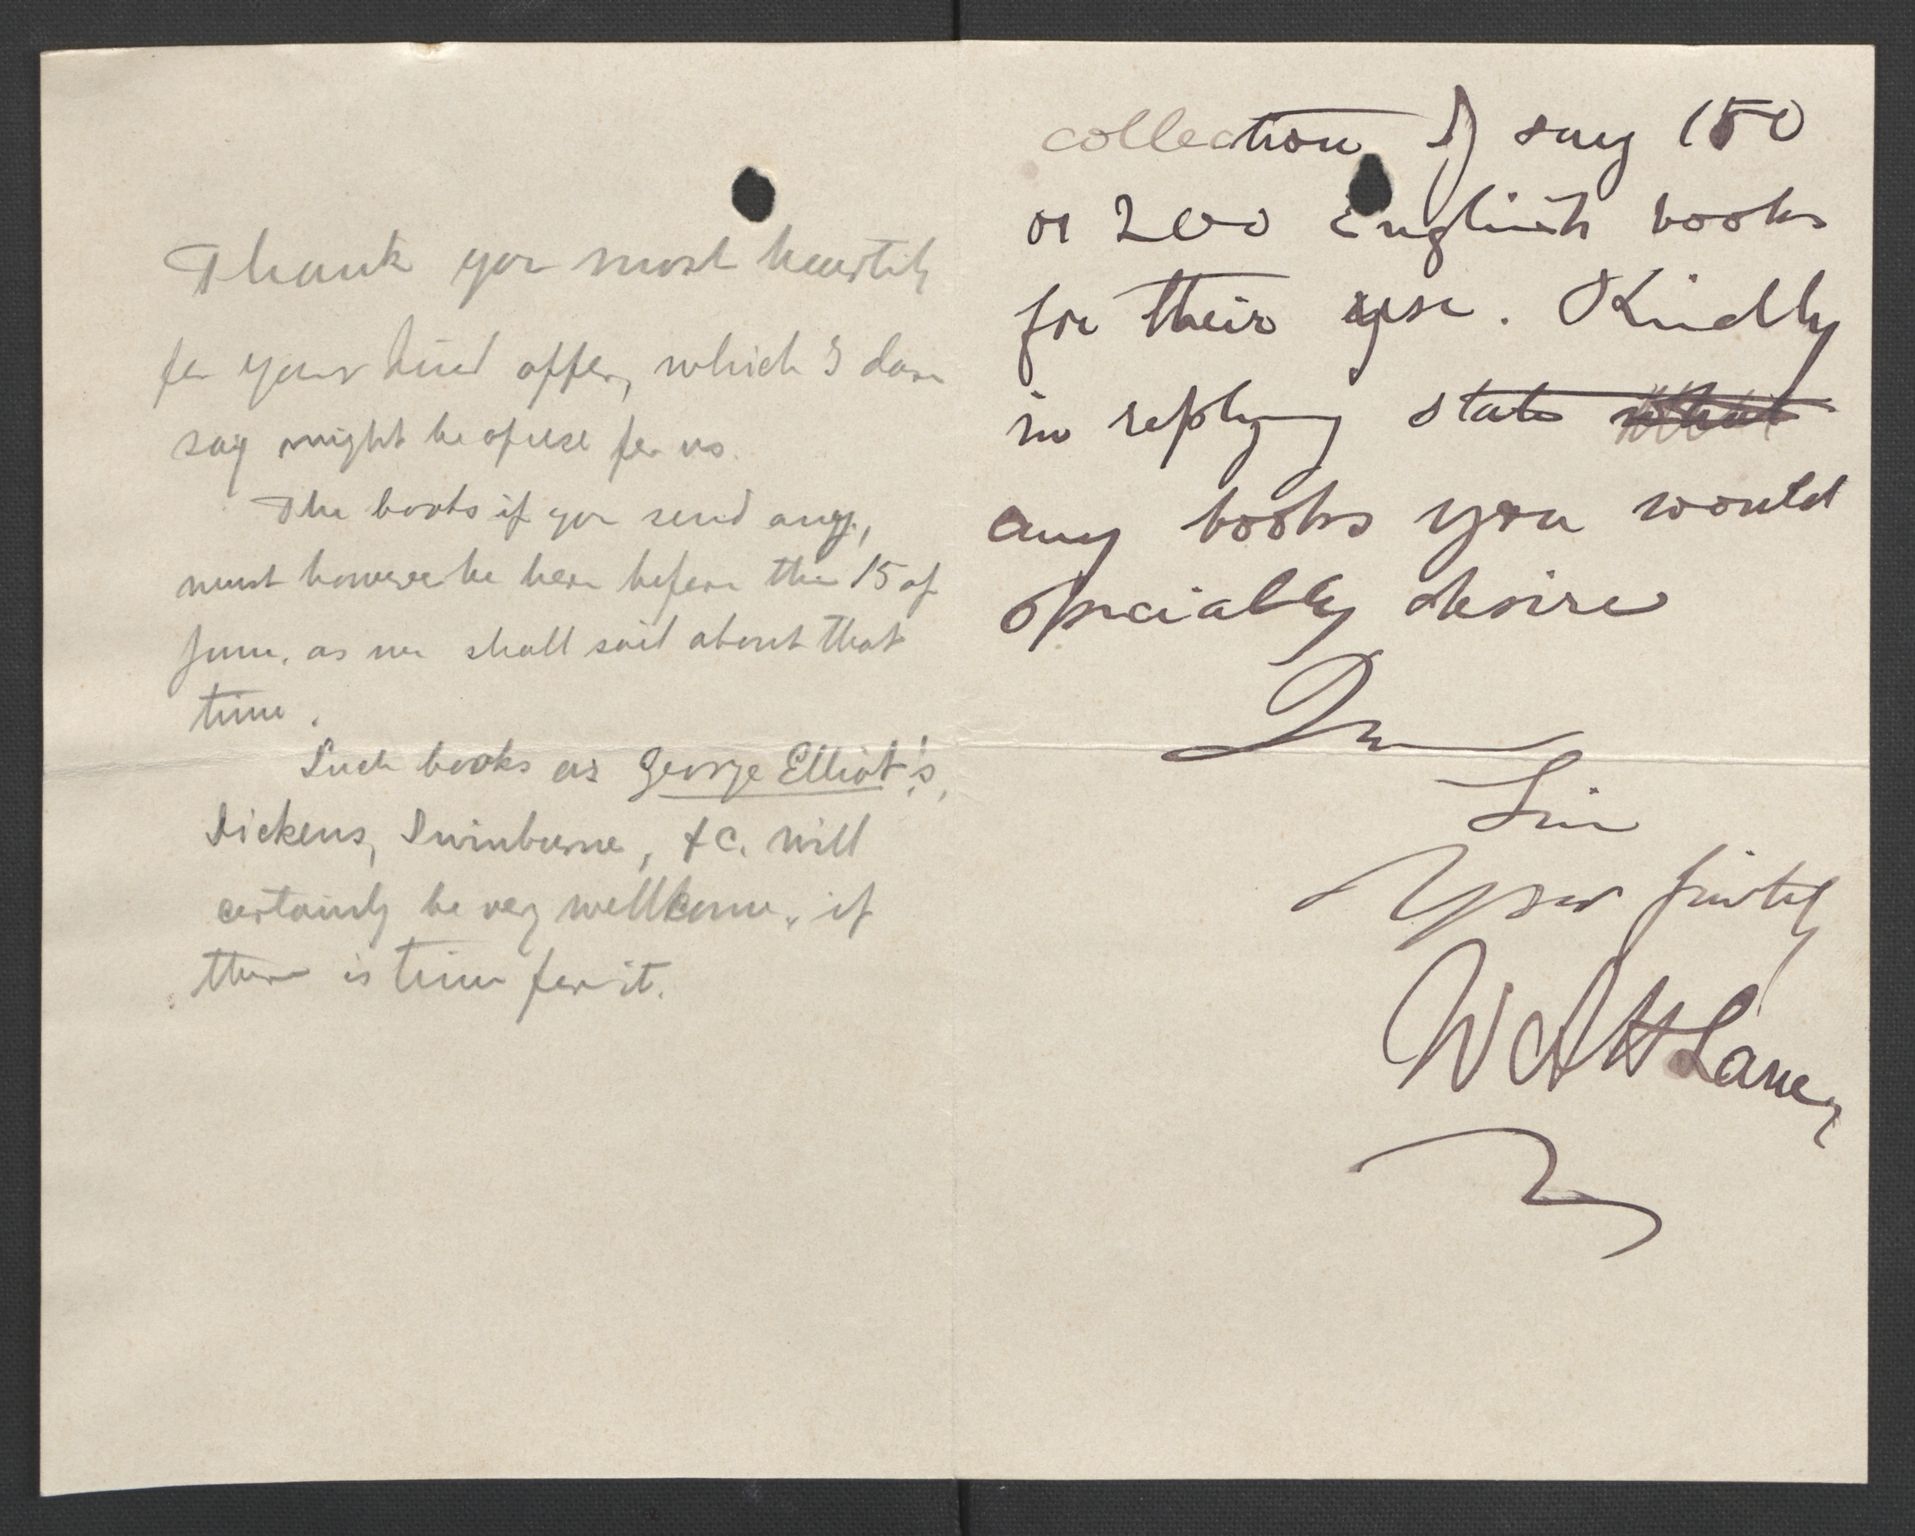 Thank you most heartily
for your kind offer, which I dare
say might be of use for us.
The books if you send any,
must however be here before the 15 of
June, as we shall sail about that
time.
Such books as George Elliot's,
Dickens, Swinburne, &c. will
certainly be very wellkome, if
there is time for it.
collection of say 150
or 200 English books
for their use. Kindly
in replying state what
any books you would
specially desire
I am
Sir
Yours faithfully